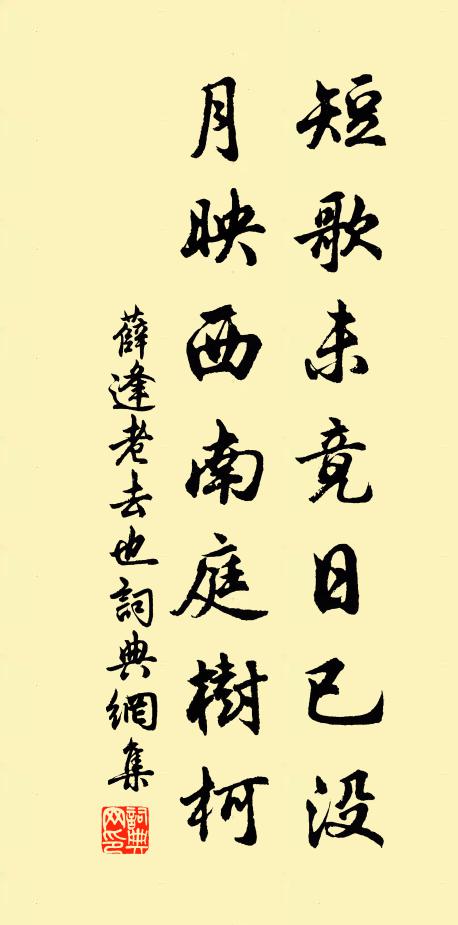 短歌未竟日已没
月映西南庭樹柯
薛逢老去也詞典網集
詞典網印